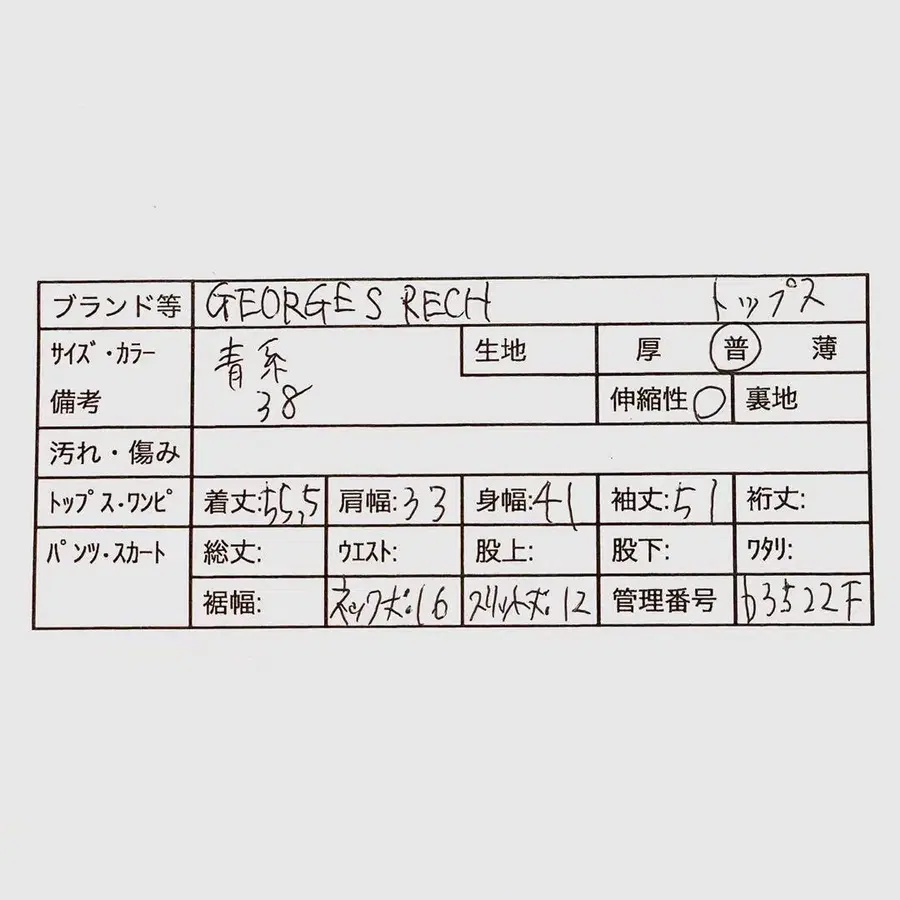 ブランド等 GEORGES RECH トップス
サイズ・カラー 青系 生地 厚 普 薄
備考 38 伸縮性 ○ 裏地
汚れ・傷み
トップス・ワンピ 着丈:55,5 肩幅:33 身幅:41 袖丈:51 裄丈:
パンツ・スカート 総丈: ウエスト: 股上: 股下: ワタリ:
裾幅: ネック丈:16 スリット丈:12 管理番号 b3522F